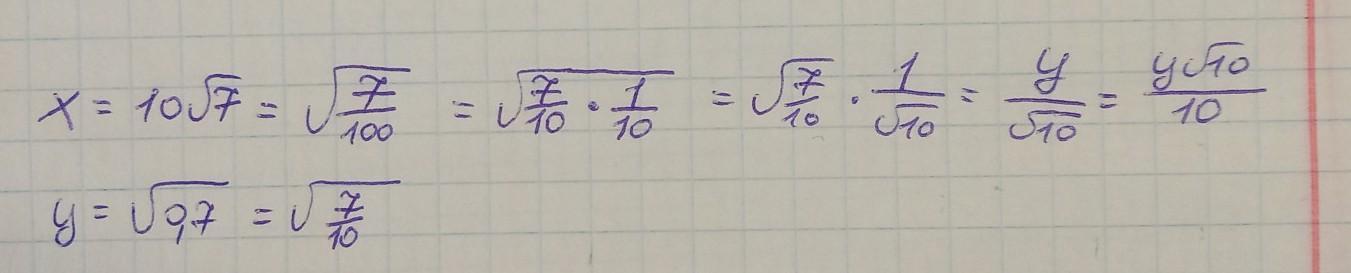 x = 10√7 = √(7/100) = √(7/10 · 1/10) = √(7/10) · 1/√10 = y/√10 = y√10/10
y = √0,7 = √(7/10)